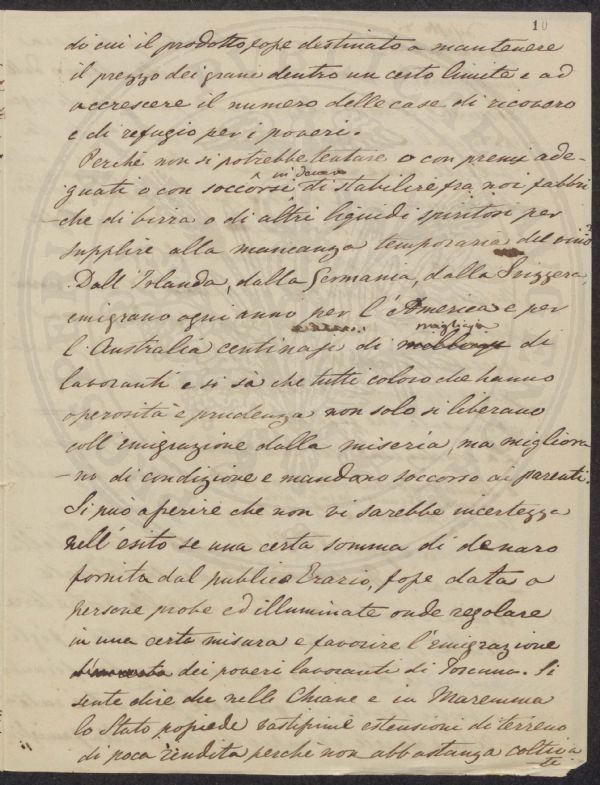 10
di cui il prodotto fosse destinato a mantenere
il prezzo dei grani dentro un certo limite e ad
accrescere il numero delle case di ricovero
e di refugio per i poveri.
Perchè non si potrebbe tentare o con premi ade-
guati o con soccorsi in denaro di stabilire fra noi fabbri
-che di birra o di altri liquidi spiritosi per
supplire alla mancanza temporaria del vino?
Dall'Irlanda, dalla Germania, dalla Svizzera,
emigrano ogni anno per l'America e per
l'Australia centinaja di migliaja di
lavoranti e si sà che tutti coloro che hanno
operosità e prudenza non solo si liberano
coll'emigrazione dalla miseria, ma migliora
-no di condizione e mandano soccorso ai parenti.
Si può asserire che non vi sarebbe incertezza
nell'esito se una certa somma di denaro
fornita dal publico Erario, fosse data a
persone probe ed illuminate onde regolare
in una certa misura e favorire l'emigrazione
dei poveri lavoranti di Toscana. Si
sente dire che nelle Chiane e in Maremma
lo Stato possiede vastissime estensioni di terreno
di poca rendita perchè non abbastanza coltiva
te